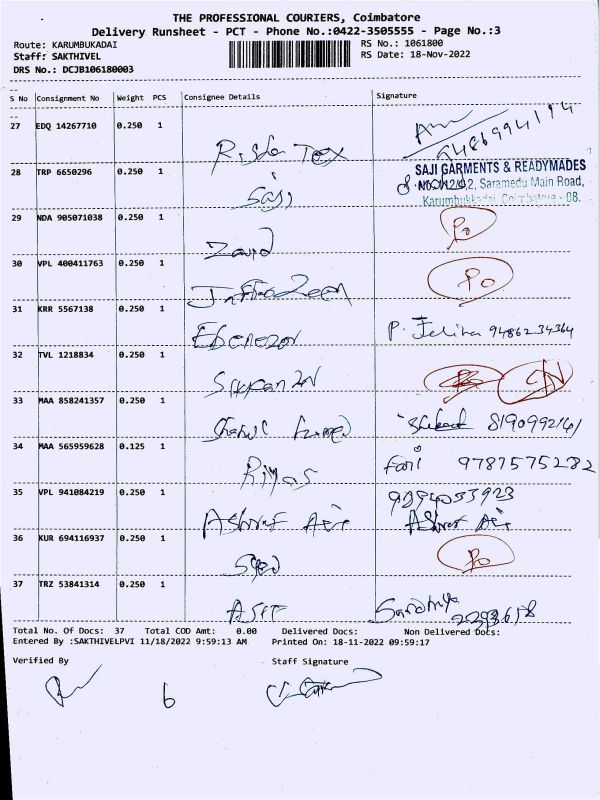 THE PROFESSIONAL COURIERS, Coimbatore
Delivery Runsheet - PCT - Phone No.:0422-3505555 - Page No.:3
Route: KARUMBUKADAI
RS No.: 1061800
Staff: SAKTHIVEL
RS Date: 18-Nov-2022
DRS No.: DCJB106180003
S No Consignment No Weight PCS Consignee Details Signature
27 EDQ 14267710 0.250 1
Tex
28 TRP 6650296 0.250 1
Saji
SAJI GARMENTS & READYMADES
Saramedu Main Road,
Karumbukkadai, Coimbatore - 08.
29 NDA 905071038 0.250 1
Zavid
Po
30 VPL 400411763 0.250 1
Po
31 KRR 5567138 0.250 1
Ebenezer
P. 9486234364
32 TVL 1218834 0.250 1
33 MAA 858241357 0.250 1
34 MAA 565959628 0.125 1
Riyas
9787575282
35 VPL 941084219 0.250 1
Ashraf
Ashraf
36 KUR 694116937 0.250 1
Syed
Po
37 TRZ 53841314 0.250 1
Asif
Total No. Of Docs: 37 Total COD Amt: 0.00 Delivered Docs: Non Delivered Docs:
Entered By :SAKTHIVELPVI 11/18/2022 9:59:13 AM Printed On: 18-11-2022 09:59:17
Verified By Staff Signature
6